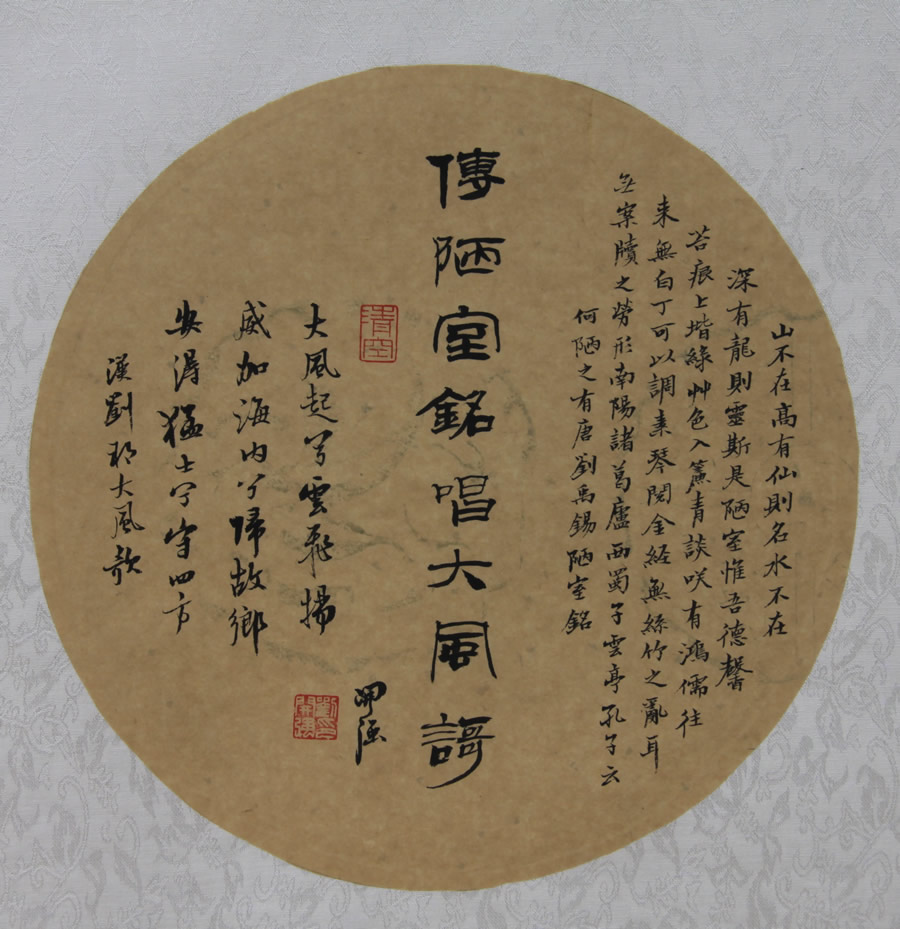 山不在高有仙則名水不在
深有龍則靈斯是陋室惟吾德馨
苔痕上堦綠艸色入簾青談咲有鴻儒往
来無白丁可以調素琴閱金経無絲竹之亂耳
無案牘之勞形南陽諸葛廬西蜀子雲亭孔子云
何陋之有唐劉禹錫陋室銘
傳陋室銘唱大風謌
清空
大風起兮雲飛揚
威加海内兮歸故鄉
安得猛士兮守四方
漢劉邦大風歌
開強
劉開強印